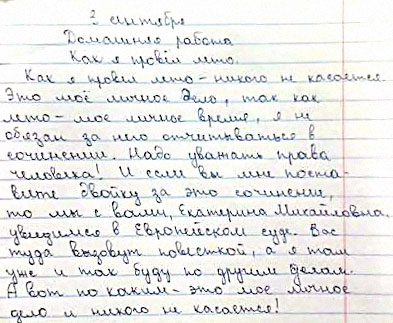 2 сентября
Домашняя работа
Как я провёл лето.
Как я провёл лето - никого не касается.
Это моё личное дело, так как
лето - мое личное время, я не
обязан за него отчитываться в
сочинении. Надо уважать права
человека! И если вы мне поста-
вите двойку за это сочинение,
то мы с вами, Екатерина Михайловна,
увидимся в Европейском суде. Вас
туда вызовут повесткой, а я там
уже и так буду по другим делам.
А вот по каким - это мое личное
дело и никого не касается!